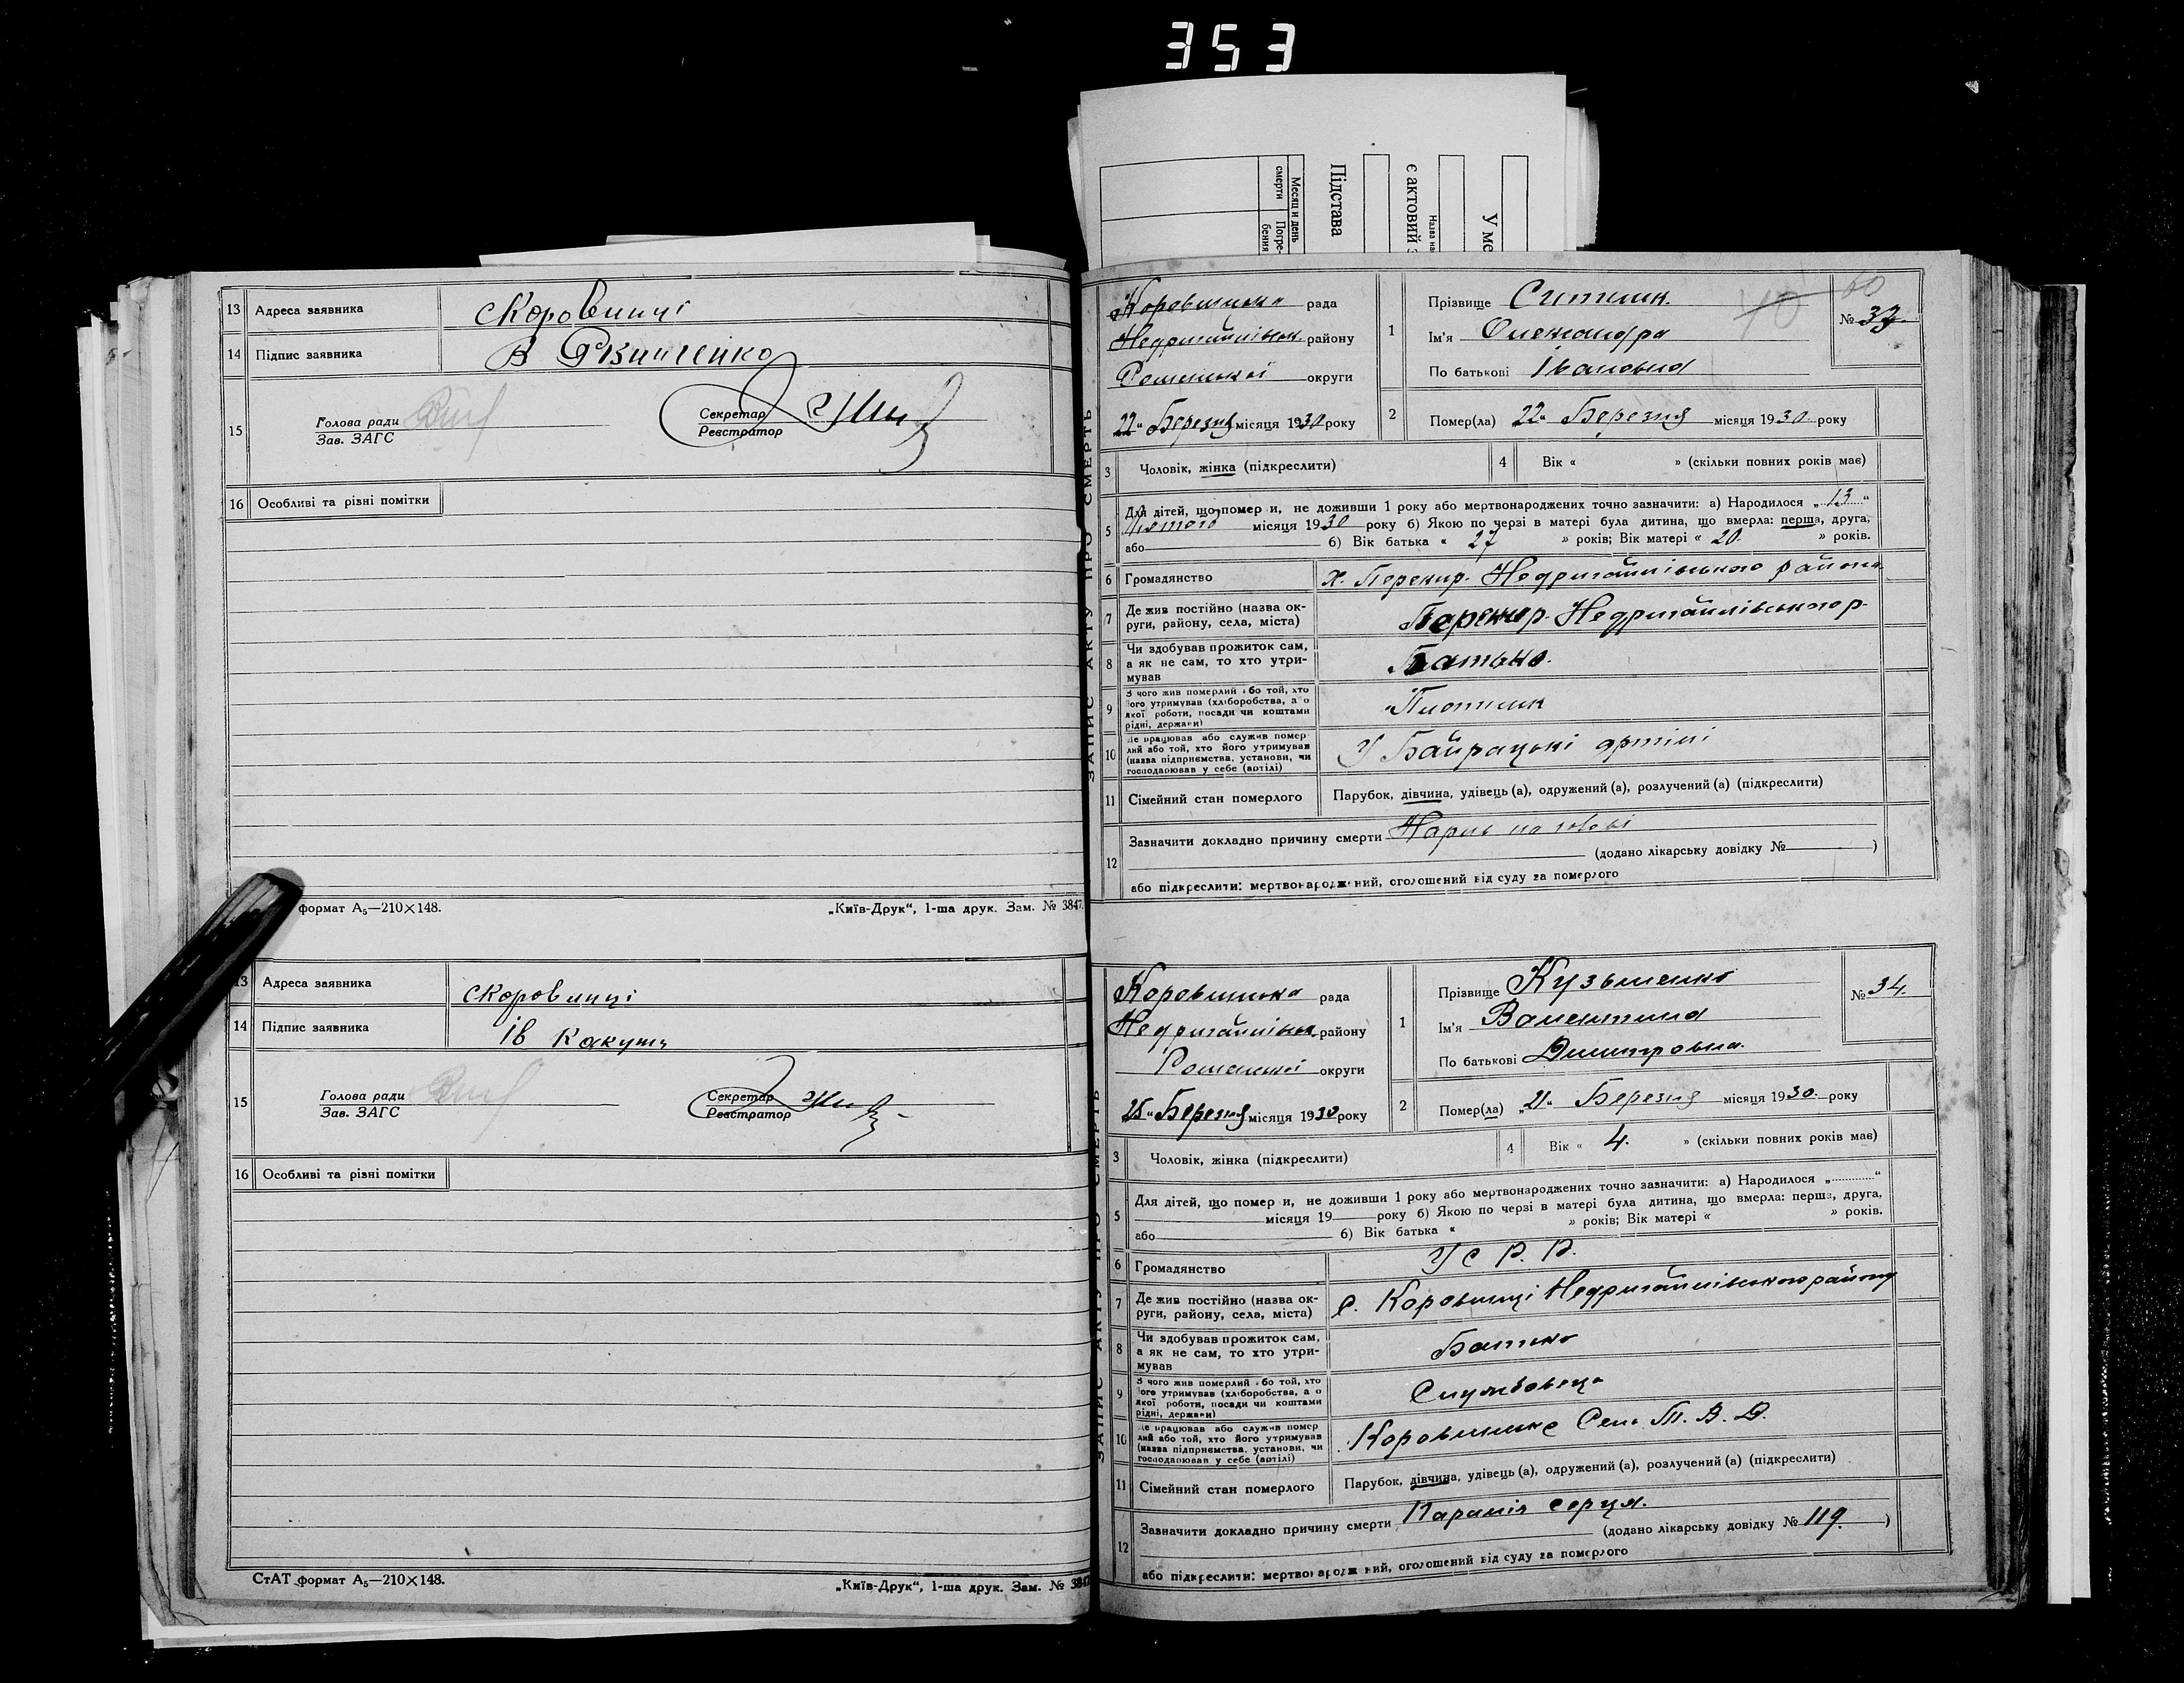 353
Месяц и день
смерти
Погре-
бения
Підстава
є актовий
У ме
13 Адреса заявника с Коровинці
14 Підпис заявника В
15 Голова ради
Зав. ЗАГС
Секретар
Реєстратор
16 Особливі та різні помітки
формат А₅—210×148. „Київ-Друк“, 1-ша друк. Зам. № 3847.
13 Адреса заявника с Коровинці
14 Підпис заявника Ів Какуть
15 Голова ради
Зав. ЗАГС
Секретар
Реєстратор
16 Особливі та різні помітки
СтАТ формат А₅—210×148. „Київ-Друк“, 1-ша друк. Зам. № 3847
ЗАПИС АКТУ ПРО СМЕРТЬ
Коровинська рада
Недригайлівськ. району
Роменської округи
„22“ Березня місяця 1930 року
1 Прізвище Ситник.
Ім'я Олександра
По батькові Івановна
40 60
№ 33.
2 Помер(ла) „22“ Березня місяця 1930 року
3 Чоловік, жінка (підкреслити)
4 Вік « » (скільки повних років має)
5 Для дітей, що помер и, не доживши 1 року або мертвонароджених точно зазначити: а) Народилося „13“
Лютого місяця 1930 року б) Якою по черзі в матері була дитина, що вмерла: перша, друга,
або б) Вік батька « 27 » років; Вік матері « 20. » років.
6 Громадянство х. Недригайлівського района
7 Де жив постійно (назва ок-
руги, району, села, міста) Недригайлівського р.
8 Чи здобував прожиток сам,
а як не сам, то хто утри-
мував Батько.
9 З чого жив померлий або той, хто
його утримував (хліборобства, а о
якої роботи, посади чи коштами
рідні, держави) Плотник
10 Де працював або служив помер
лий або той, хто його утримував
(назва підприємства, установи, чи
господарював у себе (артілі) У Байрацькі артілі
11 Сімейний стан померлого Парубок, дівчина, удівець (а), одружений (а), розлучений (а) (підкреслити)
12 Зазначити докладно причину смерти Нарив на голові
(додано лікарську довідку № )
або підкреслити: мертвонароджений, оголошений від суду за померлого
ЗАПИС АКТУ ПРО СМЕРТЬ
Коровинська рада
Недригайлівськ. району
Роменської округи
„25“ Березня місяця 1930 року
1 Прізвище Кузьменко
Ім'я Валентина
По батькові Дмитровна.
№ 34.
2 Помер(ла) „21“ Березня місяця 1930. року
3 Чоловік, жінка (підкреслити)
4 Вік « 4. » (скільки повних років має)
5 Для дітей, що помер и, не доживши 1 року або мертвонароджених точно зазначити: а) Народилося „ “
місяця 19 року б) Якою по черзі в матері була дитина, що вмерла: перша, друга,
або б) Вік батька « » років; Вік матері « » років.
6 Громадянство У С Р. Р.
7 Де жив постійно (назва ок-
руги, району, села, міста) с. Коровинці Недригайлівського району
8 Чи здобував прожиток сам,
а як не сам, то хто утри-
мував Батько
9 З чого жив померлий або той, хто
його утримував (хліборобства, а о
якої роботи, посади чи коштами
рідні, держави) Службовець
10 Де працював або служив помер
лий або той, хто його утримував
(назва підприємства, установи, чи
господарював у себе (артілі) Коровинське Сель Т. В. О.
11 Сімейний стан померлого Парубок, дівчина, удівець (а), одружений (а), розлучений (а) (підкреслити)
12 Зазначити докладно причину смерти Параліч серця.
(додано лікарську довідку № 119. )
або підкреслити: мертвонароджений, оголошений від суду за померлого